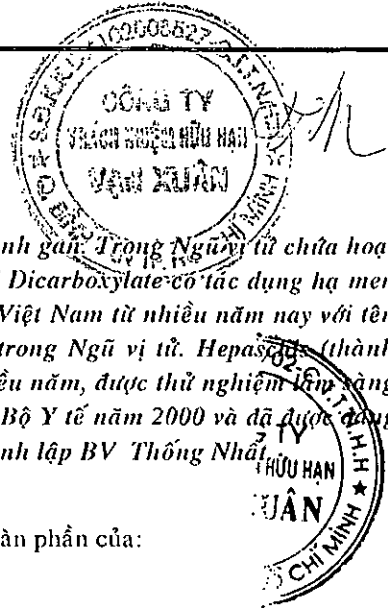 CÔNG TY
TRÁCH NHIỆM HỮU HẠN
VẠN XUÂN
MINH
nh gan. Trong Ngũ vị tử chứa hoạ
Dicarboxylate có tác dụng hạ men
Việt Nam từ nhiều năm nay với tên
trong Ngũ vị tử. (thành
ều năm, được thử nghiệm lâm sàng
Bộ Y tế năm 2000 và đã được
nh lập BV Thống Nhất
C.T.T.N.H.H
TY
HỮU HẠN
UÂN
CHÍ MINH
àn phần của: